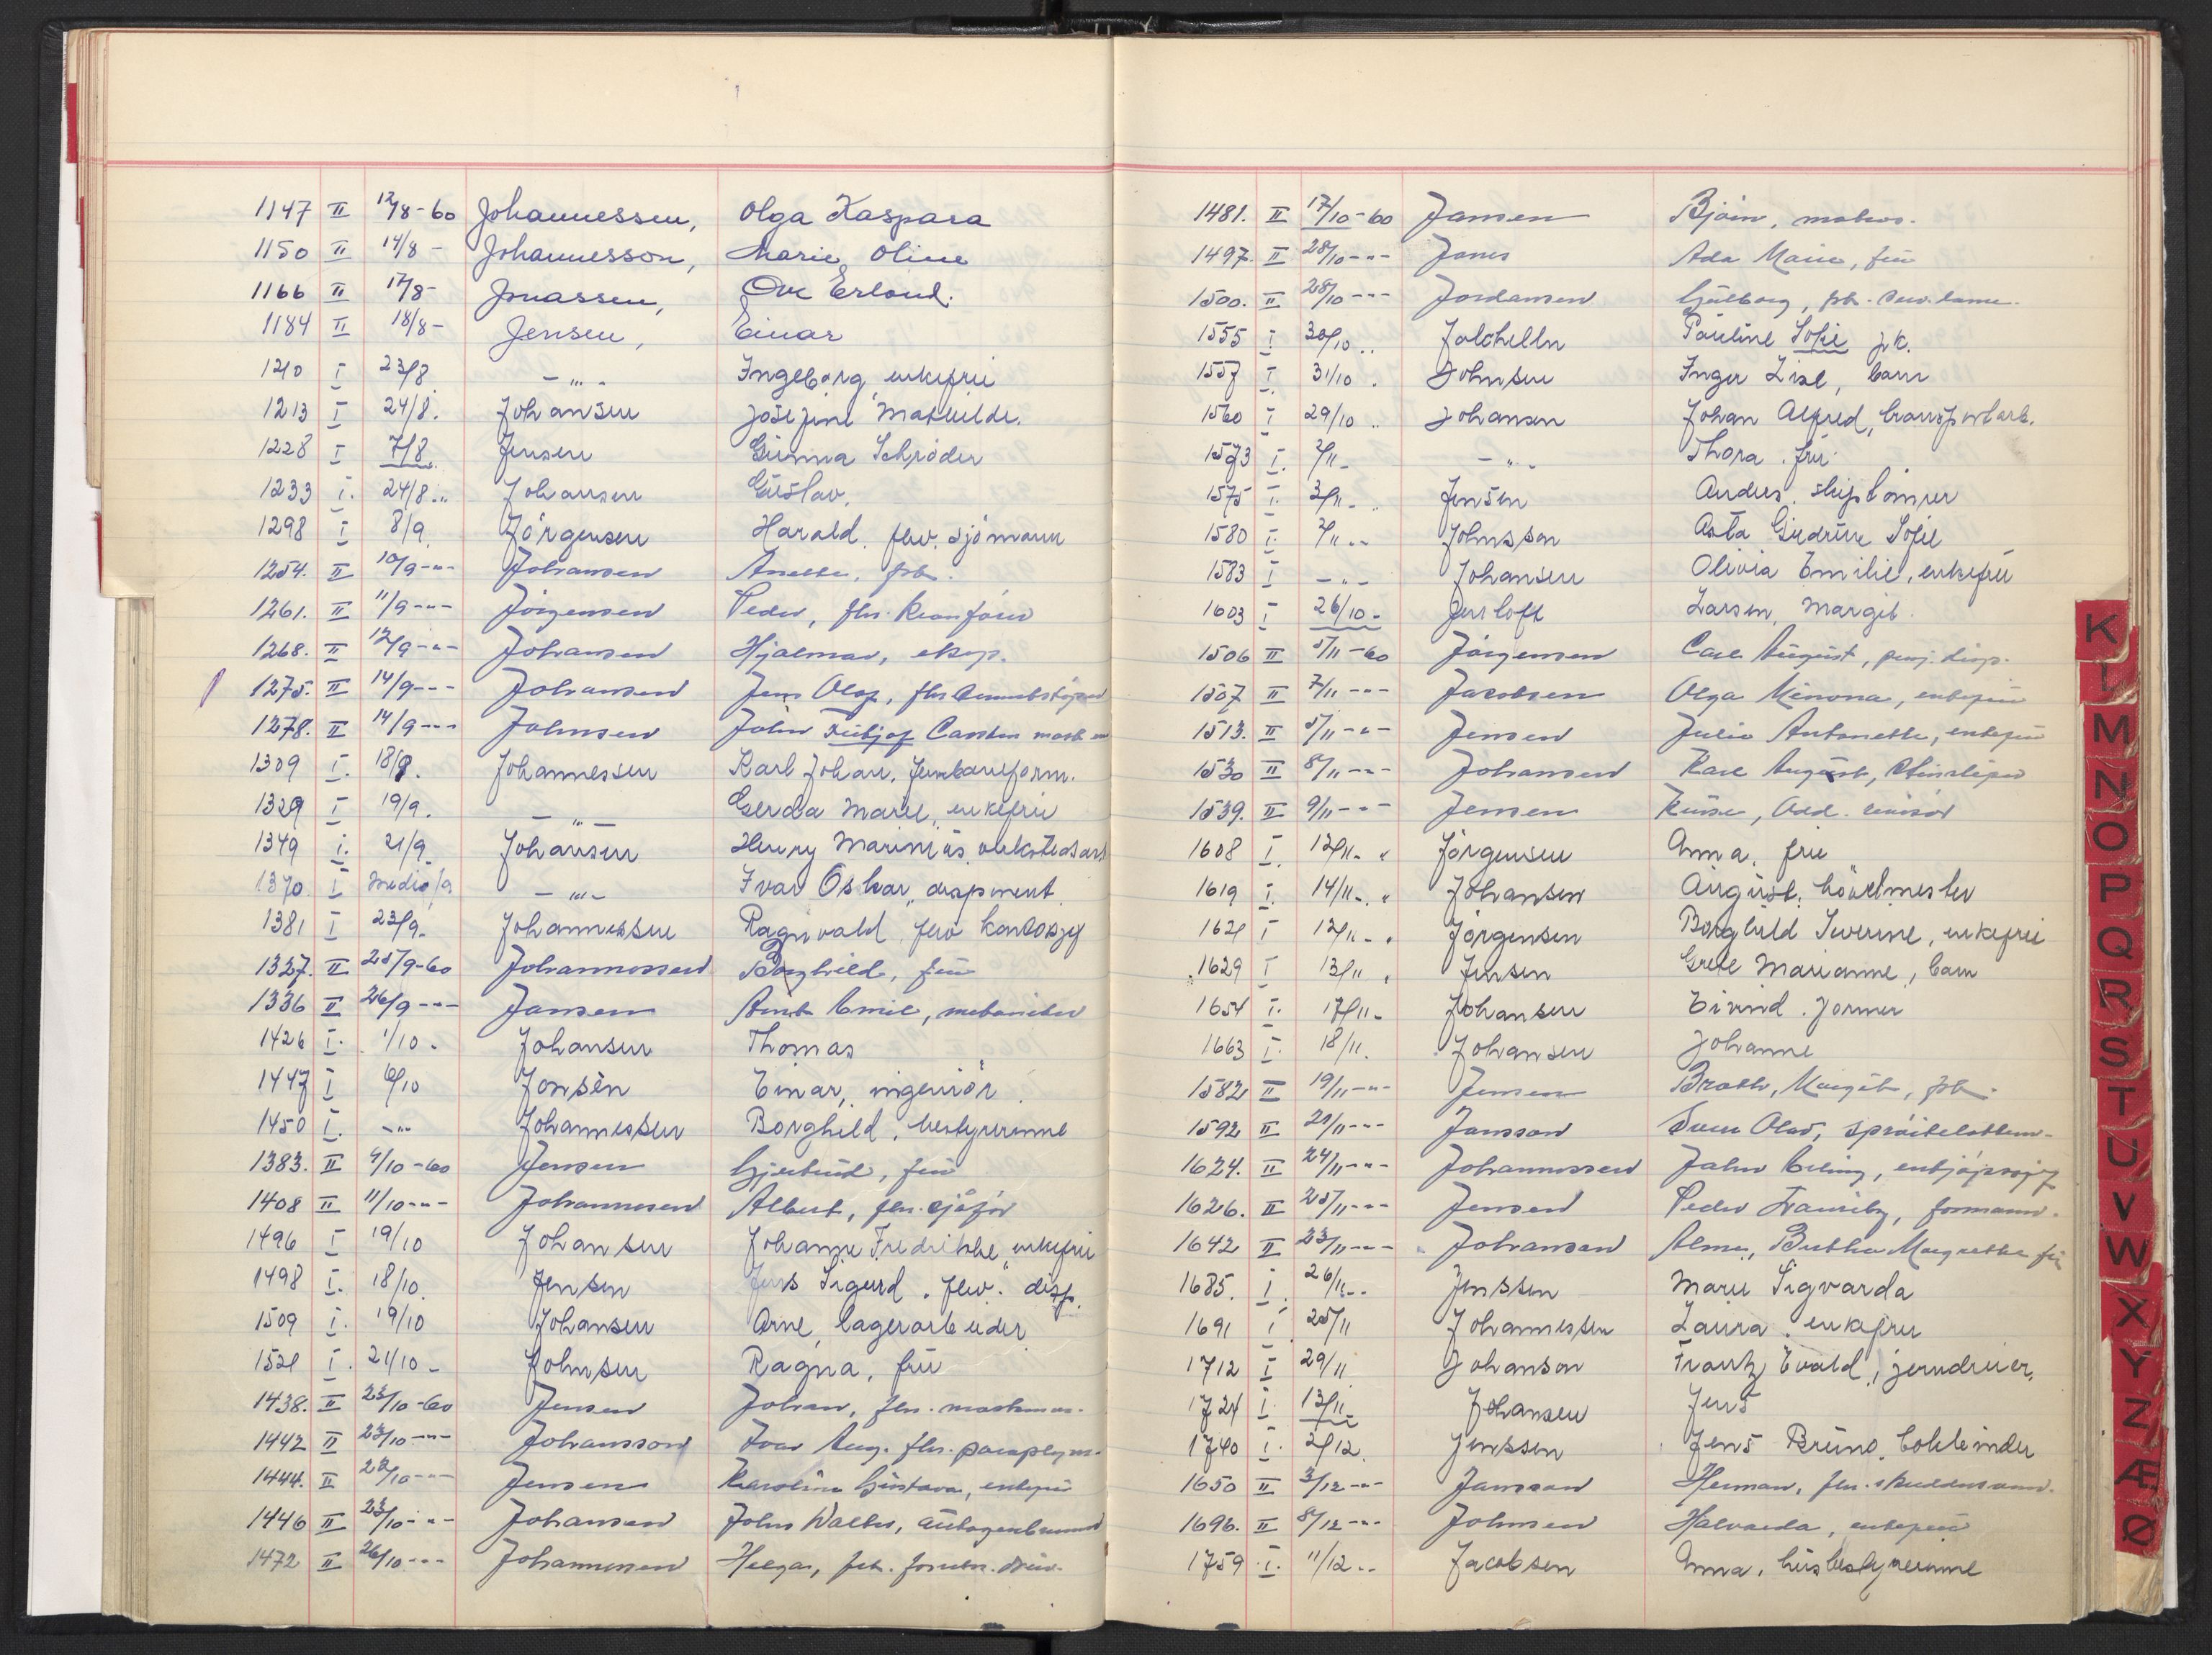 1147 II 12/8-60 Johannessen, Olga Kaspara
1150 II 14/8 - Johannesson, Marie Oline
1166 II 17/8- Jonassen, Ove Erland.
1184 II 18/8- Jensen, Einar
1210 I 23/8 - " - Ingeborg, enkefrú
1213 I 24/8. Johansen Josefine Mathilde.
1228 I 7/8. Jensen Gúnna Schrøder
1233 I. 24/8 .. Johansen Gústav.
1298 I 8/9. Jörgensen Harald. fhv. sjömann
1254. II 10/9 -"- Johansen Anette, frk.
1261. II 11/9 -"- Jörgensen Peder, fhv. kranförer
1268. II 12/9 -"- Johansen Hjalmar, eksp.
1275. II 14/9 -"- Johansen Jens Olaf, fhv.
1278. II 14/9 -"- Johnsen John Fritjof Carsten
1309 I. 18/9. Johannessen Karl Johan, jernbaneform.
1329 I 19/9. - " - Gerda Marie, enkefrú
1349 I. 21/9. Johansen Henry Marinús, verkstedsarb
1370. I medio/9 - " - Ivar Oskar, disponent.
1381 I 23/9. Johannessen Ragnvald, fhv.
1327. II 25/9-60 Johannessen Borghild, frú
1336 II 26/9 -"- Jansen Arnt Emil, mekaniker
1426 I. 1/10 - Johansen Thomas
1447 I 6/10 Jonsèn Einar, ingeniör.
1450 I. - " - Johannessen Borghild, bestyrerinne
1383. II 9/10-60 Jensen Gjertrúd, frú
1408 II 11/10 -"- Johannesen Albert, fhv. sjåför
1496 I 19/10 Johansen Johanne Fredrikke, enkefrú
1498 I. 18/10. Jensen Jens Sigurd. fhv. disp.
1509 I. 19/10 Johansen Arne, lagerarbeider
1521 I. 21/10 - Johnsen Ragna, frú
1438. II 23/10-60 Jensen Johan, fhv.
1442 II 23/10 -"- Johansson Ivar Aug. fhv.
1444. II 22/10 -"- Jensen Karoline Gústava, enkefrú
1446 II 23/10 -"- Johansen John Walter,
1472 II 26/10 -"- Johannesen Helga, frk.
1481. II 17/10-60 Jansen Björn, matros.
1497. II 28/10 -"- Jones Ada Marie, frú
1500. II 28/10 -"- Jordansen Gjølborg, frk.
1555 I 30/10 .. Pauline Sofie fk.
1557 I. 31/10 . Johnsen Inger Lise, barn
1560 I 29/10 .. Johansen Johan Alfred, transportarb.
1573 I. 2/11 - - " - Thora. frú.
1575 I. 3/11 - .. Jensen Anders. skipstömrer
1580 I. 2/11 .. Johnsson Asta Gúdrún Sofie
1583 I - " - Johansen Olivia Emilie, enkefrú
1603 I 26/10 - Jensloft Larsen, Margit.
1506 II 5/11-60 Jörgensen Carl Aúgúst, pens. disp.
1507 II 7/11 -"- Jacobsen Olga Minona, enkefrú
1513. II 5/11 -"- Jensen Julie Antonette, enkefrú
1530 II 8/11 -"- Johansen Karl Aúgúst,
1539. II 9/11 -"- Jensen Odd. revisor
1608 I. 12/11 - " Jörgensen Anna. frú
1619 I. 14/11 - " Johansen Aúgúst, hovelmester
1621 I 12/11 - . Jörgensen Borghild Severine, enkefrú
1629 I 13/11 . Jensen Grete Marianne, barn
1654 I. 17/11 - Johansen Eivind. former
1663 I. 18/11. Johansen Johanne
1582 II 19/11 -"- Jensen Margit, frk.
1592 II 21/11 -"- Jansson Sven Olav,
1624. II 24/11 -"- Johannessen John Erling,
1626. II 25/11 -"- Jensen Peder formann.
1642 II 23/11 -"- Johansen Alma, Bertha Margrethe frú
1685. I. 26/11 .. Jenssen Marie Sigvarda
1691 I 25/11 Johannessen Laúra. enkefrú
1712 I 29/11 Johanson Frantz Evald, jerndreier.
1724 I. 13/11 Johansen Jens
1740 I. 2/12. Jenssen Jens Brúno.
1650 II 3/12 -"- Jansson Herman, fhv.
1696. II 8/12 -"- Johnsen Halvarda, enkefrú
1759 I. 11/12 .. Jacobsen Anna. húsbestyrerinne
K
L
M
N
O
P
Q
R
S
T
U
V
W
X
Y
Z
Æ
Ø